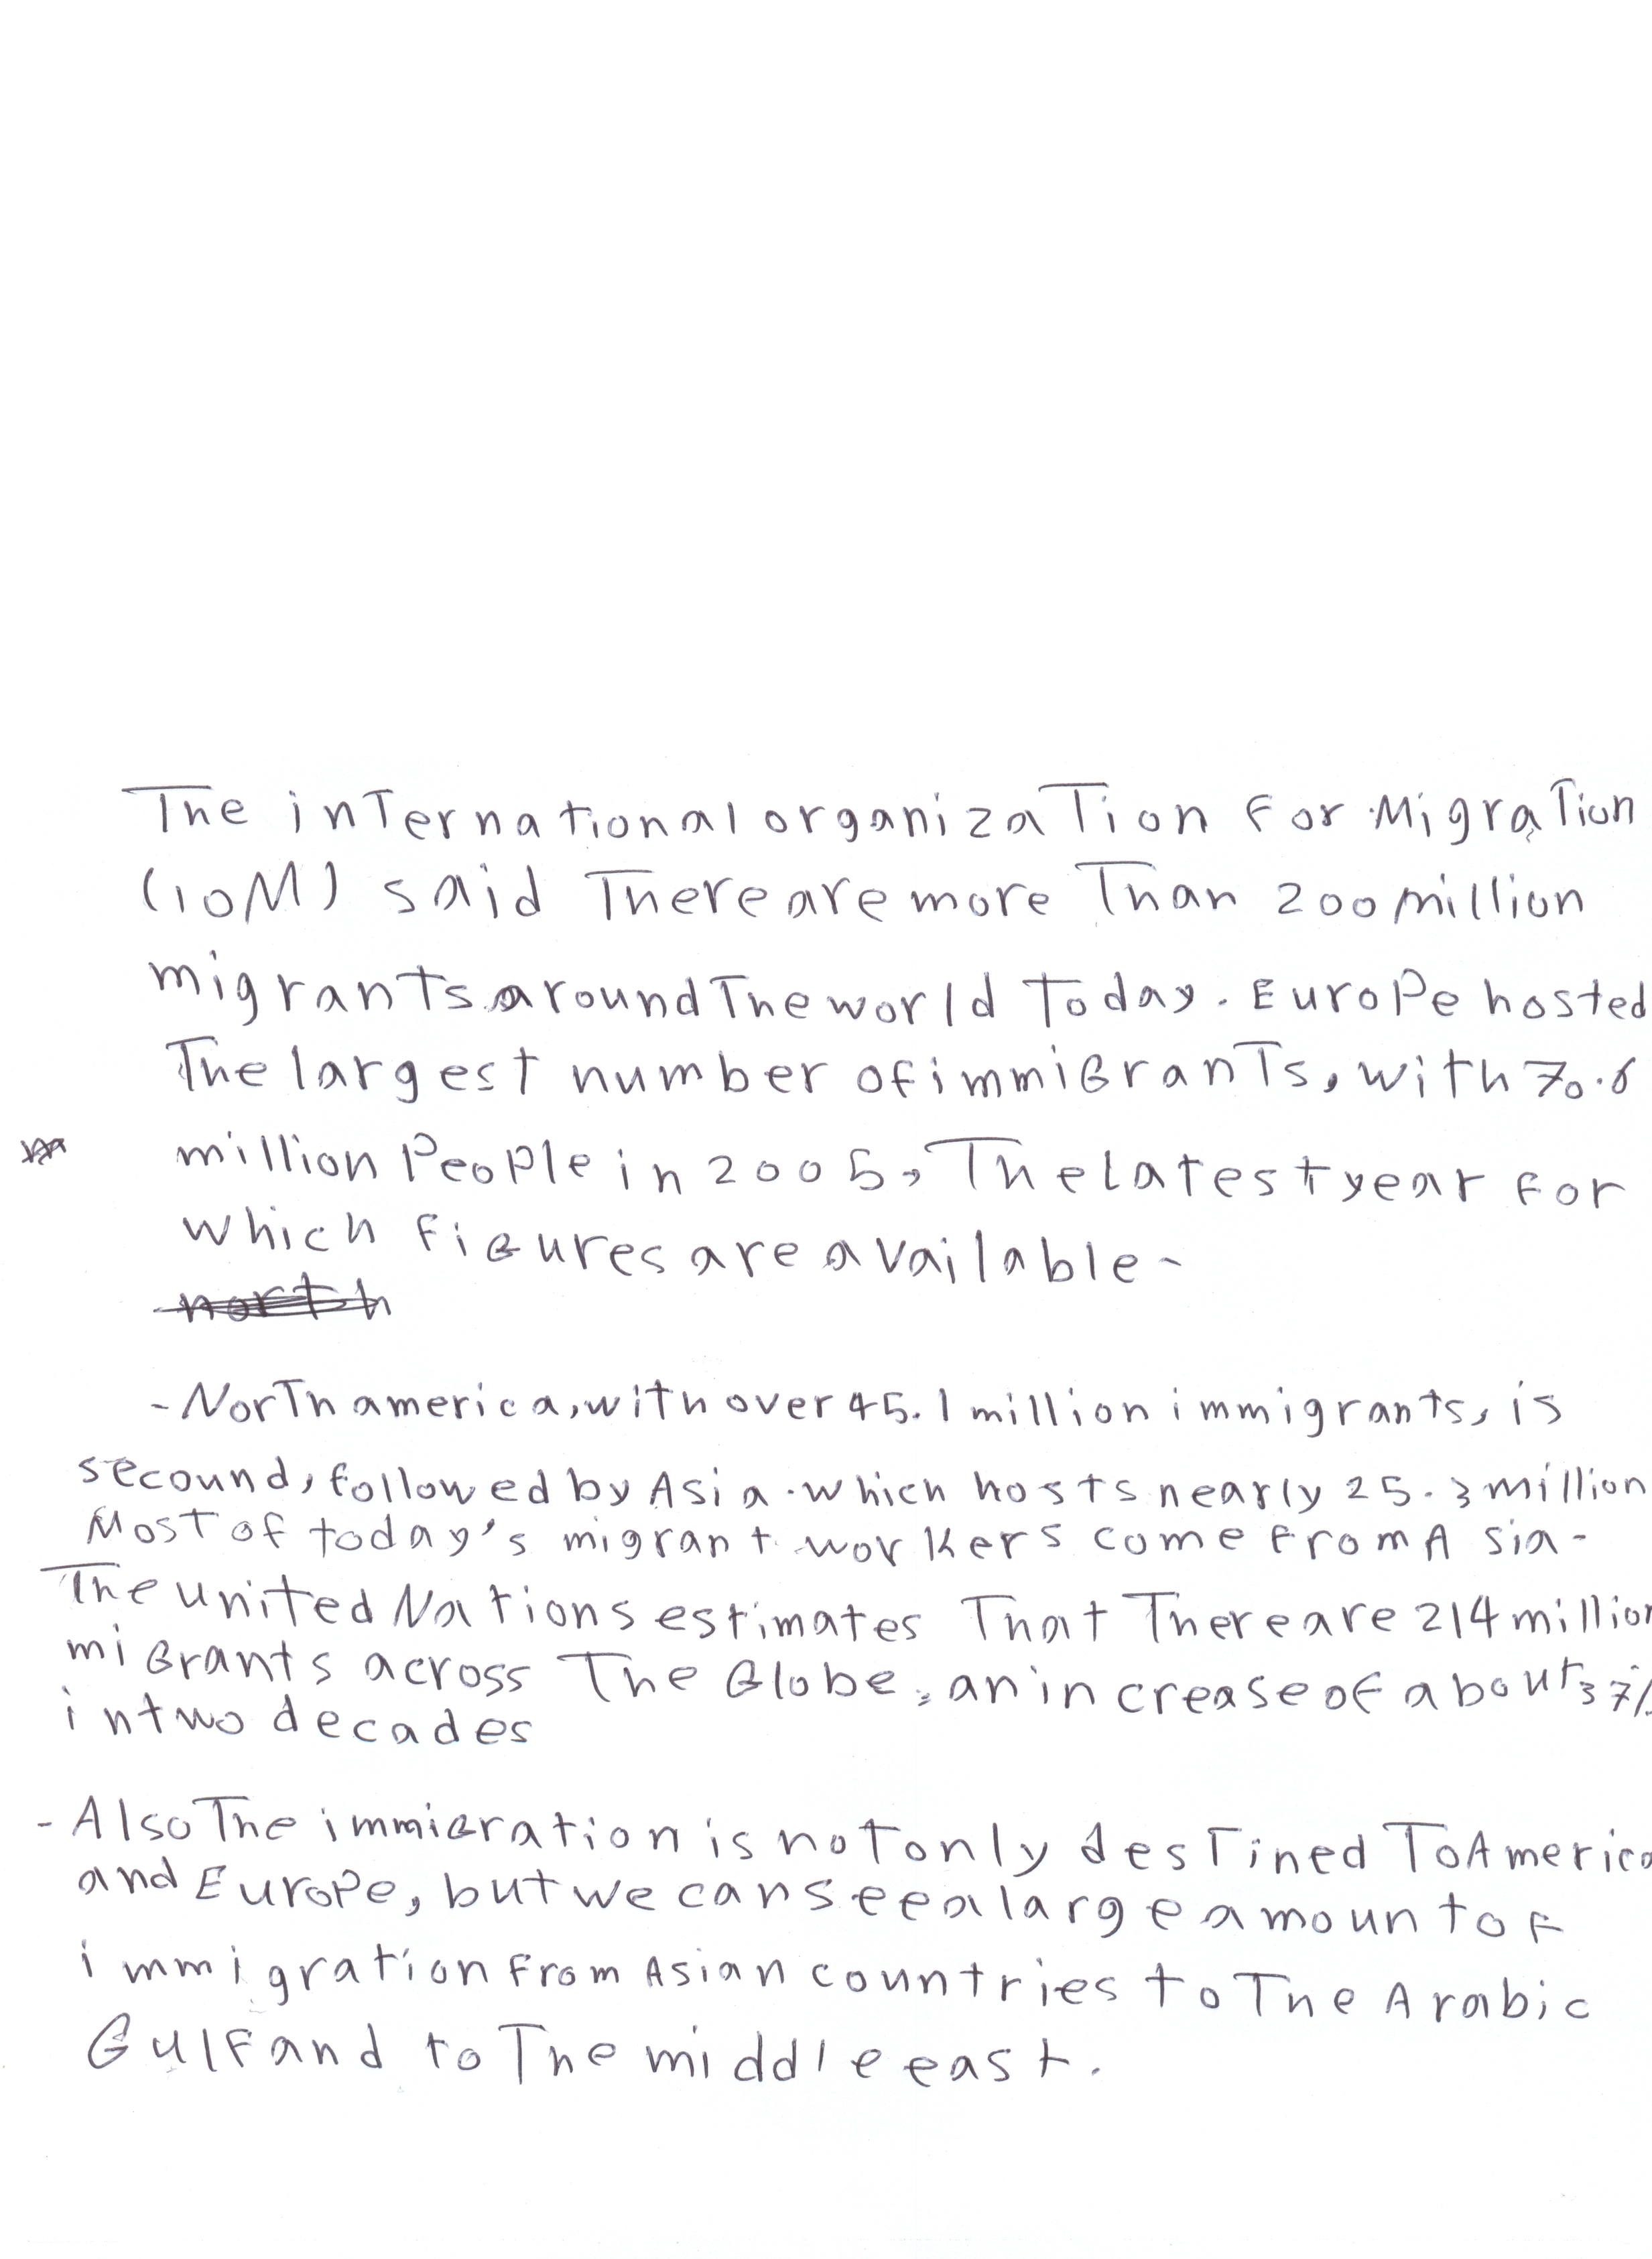 The international organization for Migration
(IOM) said There are more Than 200 million
migrants around The world today. Europe hosted
The largest number of immigrants, with 70.6
million People in 2005, The latest year for
which figures are available-
north
- North america, with over 45.1 million immigrants, is
secound, followed by Asia. which hosts nearly 25.3 million
Most of today's migrant workers come from Asia-
The united Nations estimates That There are 214 million
migrants across The Globe, an increase of about 37%
in two decades
- Also The immigration is not only destined To America
and Europe, but we can see a large amount of
immigration from Asian countries to The Arabic
Gulf and to The middle east.